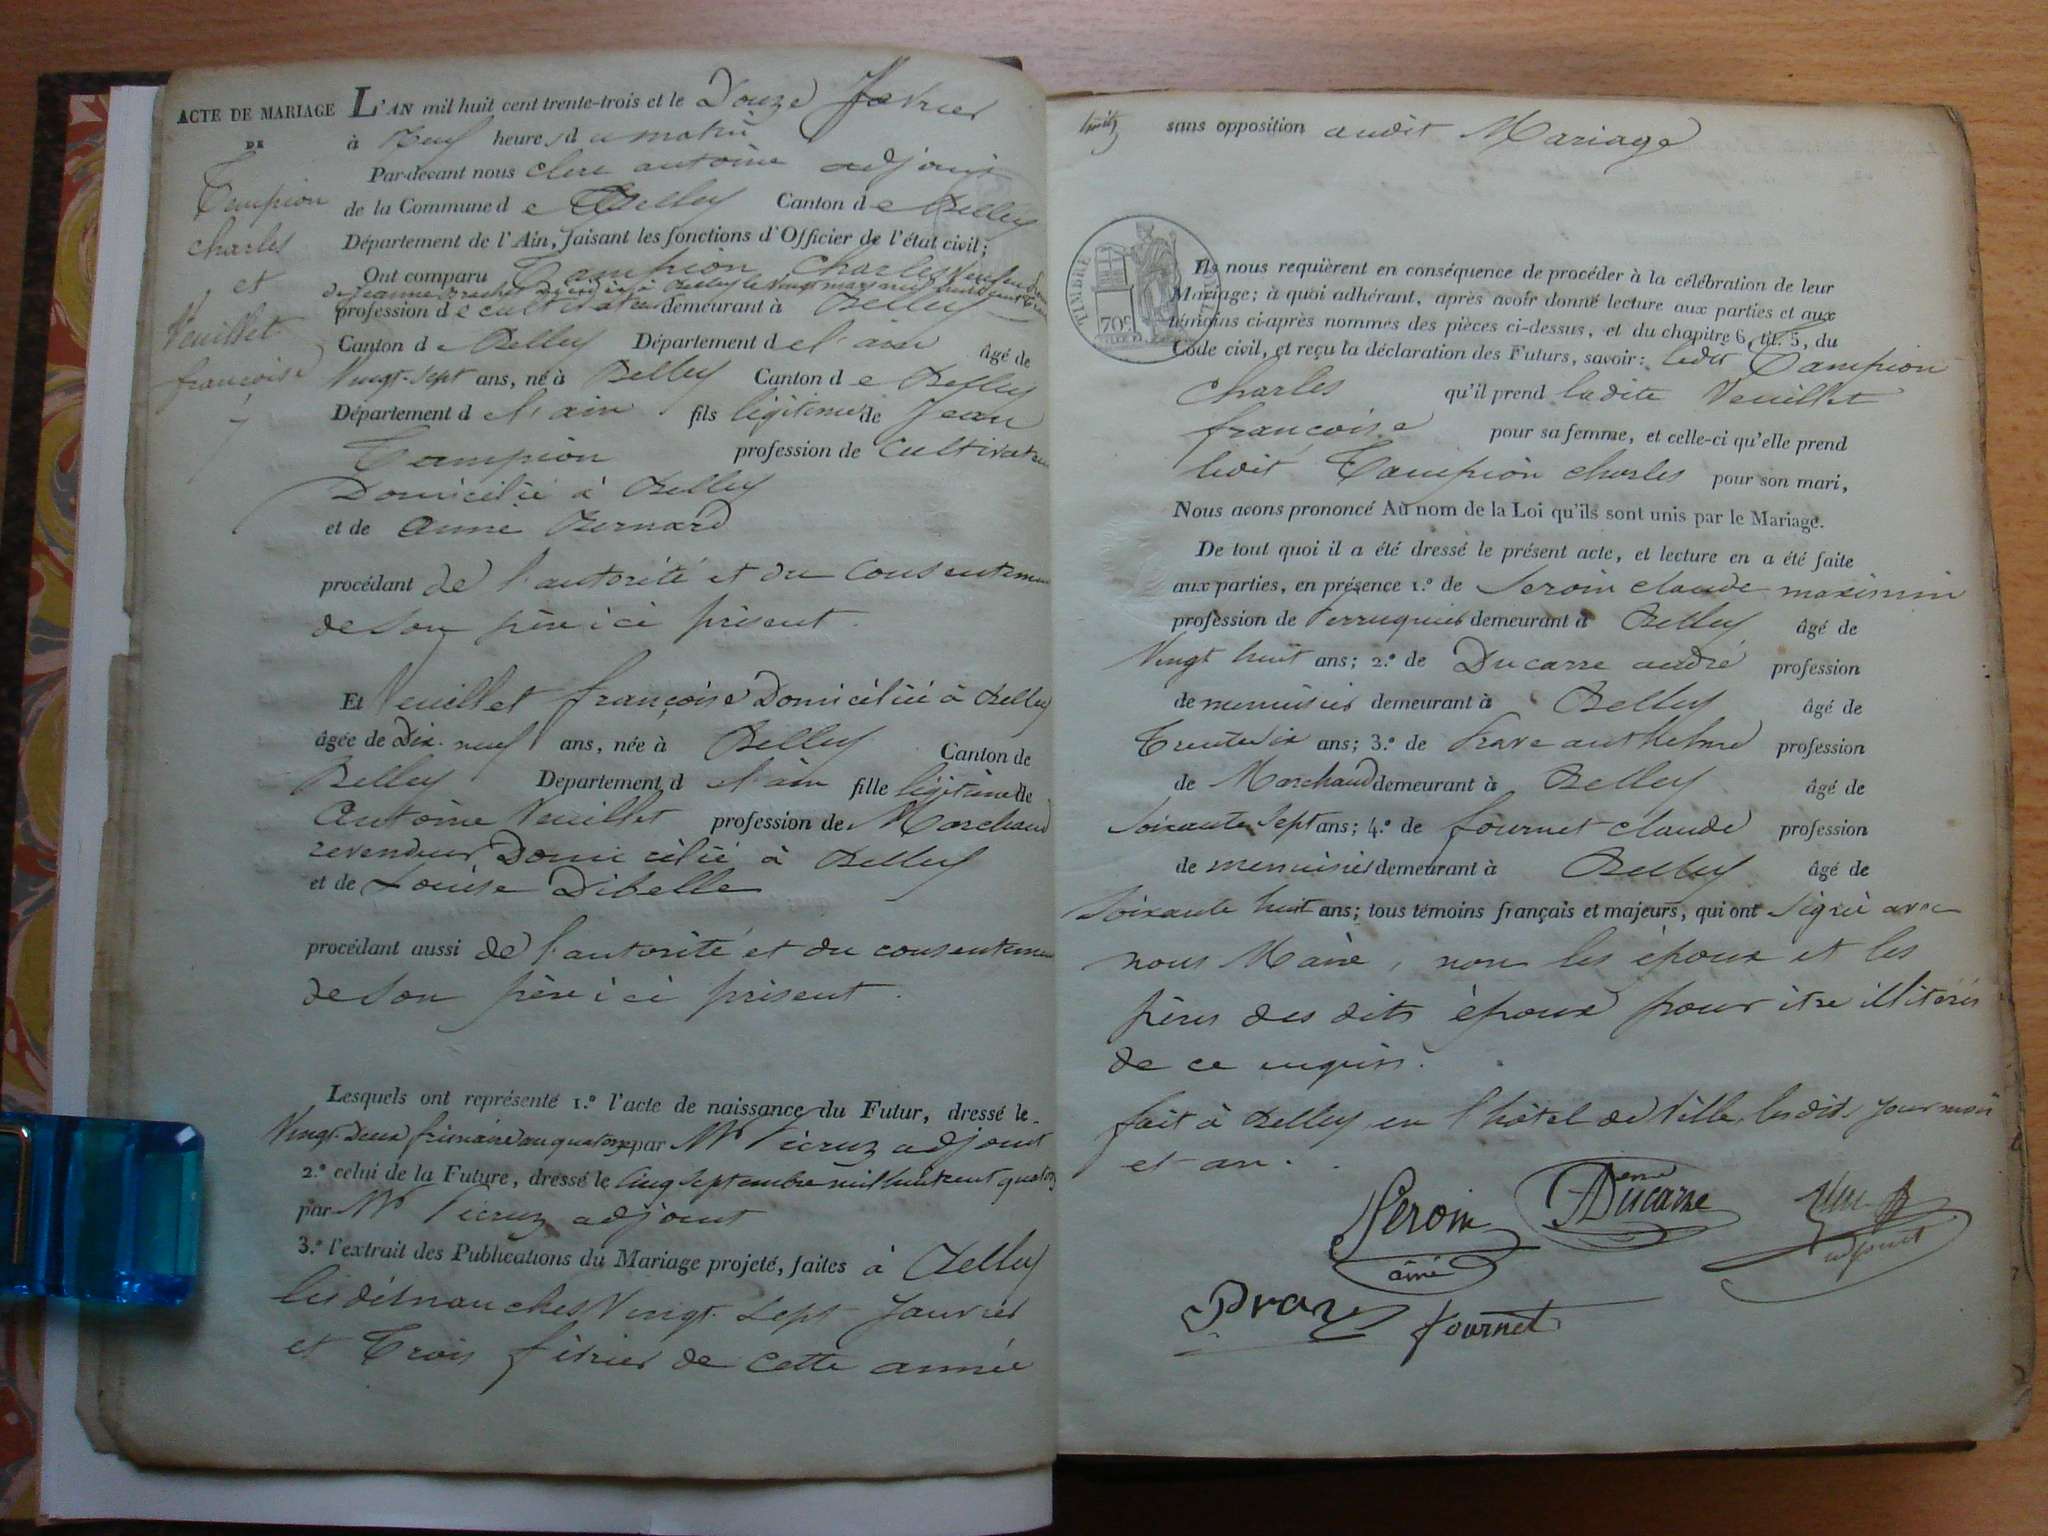 ACTE DE MARIAGE
DE
Tampion
charles
et
Veuillet
françoise
L'AN mil huit cent trente-trois et le Douze fevrier
à Neuf heures du matin
Par-devant nous clerc antoine adjoint
de la Commune de Belley Canton de Belley
Département de l'Ain, faisant les fonctions d'Officier de l'état civil;
Ont comparu Tampion Charles Veuf en
de jeanne à Belley le Vingt mars mil huit cent
profession de cultivateur demeurant à Belley
Canton de Belley Département de l'ain âgé de
Vingt-sept ans, né à Belley Canton de Belley
Département de l'ain fils légitime de Jean
Tampion profession de Cultivateur
Domicilié à Belley
et de anne Bernard
procédant de l'autorité et du consentement
de son père ici présent.
Et Veuillet françoise Domiciliée à Belley
âgée de Dix-neuf ans, née à Belley Canton de
Belley Departement de l'ain fille légitime de
Antoine Veuillet profession de Marchand
revendeur Domicilié à Belley
et de Louise Dibelle
procédant aussi de l'autorité et du consentement
de son père ici présent.
Lesquels ont représenté 1.° l'acte de naissance du Futur, dressé le
Vingt-deux frimaire an quatorze par Mr adjoint
2.° celui de la Future, dressé le cinq septembre mil huit cent quatorze
par Mr adjoint
3.° l'extrait des Publications du Mariage projeté, faites à Belley
les dimanches Vingt-sept janvier
et Trois février de cette année
sans opposition audit Mariage
TIMBRE
70c
Ils nous requièrent en conséquence de procéder à la célébration de leur
Mariage; à quoi adhérant, après avoir donné lecture aux parties et aux
témoins ci-après nommés des pièces ci-dessus, et du chapitre 6, tit. 5, du
Code civil, et reçu la déclaration des Futurs, savoir: ledit Tampion
Charles qu'il prend ladite Veuillet
françoise pour sa femme, et celle-ci qu'elle prend
ledit Tampion charles pour son mari,
Nous avons prononcé Au nom de la Loi qu'ils sont unis par le Mariage.
De tout quoi il a été dressé le présent acte, et lecture en a été faite
aux parties, en présence 1.° de Peroin claude maximin
profession de Perruquier demeurant à Belley âgé de
Vingt huit ans; 2.° de Ducarre andré profession
de menuisier demeurant à Belley âgé de
Trente six ans; 3.° de Brave anthelme profession
de Marchand demeurant à Belley âgé de
Soixante sept ans; 4.° de fournet claude profession
de menuisier demeurant à Belley âgé de
Soixante huit ans; tous témoins français et majeurs, qui ont signé avec
nous Maire, non les époux et les
pères des dits époux pour être illitérés
de ce enquis.
fait à Belley en l'hôtel de Ville, lesdits jour mois
et an.
Peroin
aîné
Ducarre
adjoint
fournet